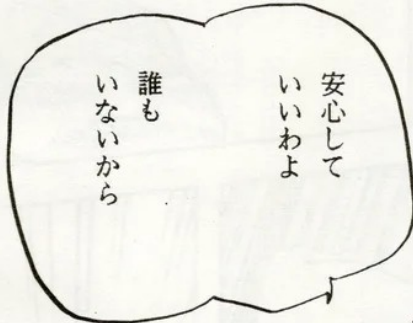 安心して
いいわよ
誰も
いないから